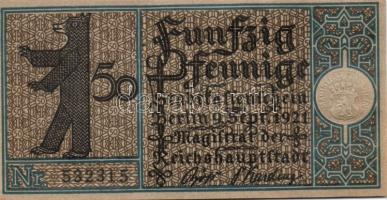 50
Fünfzig
Pfennige
Kassenschein
Berlin 9. Sept. 1921
Magistrat der
Reichshauptstadt
Nr. 532315